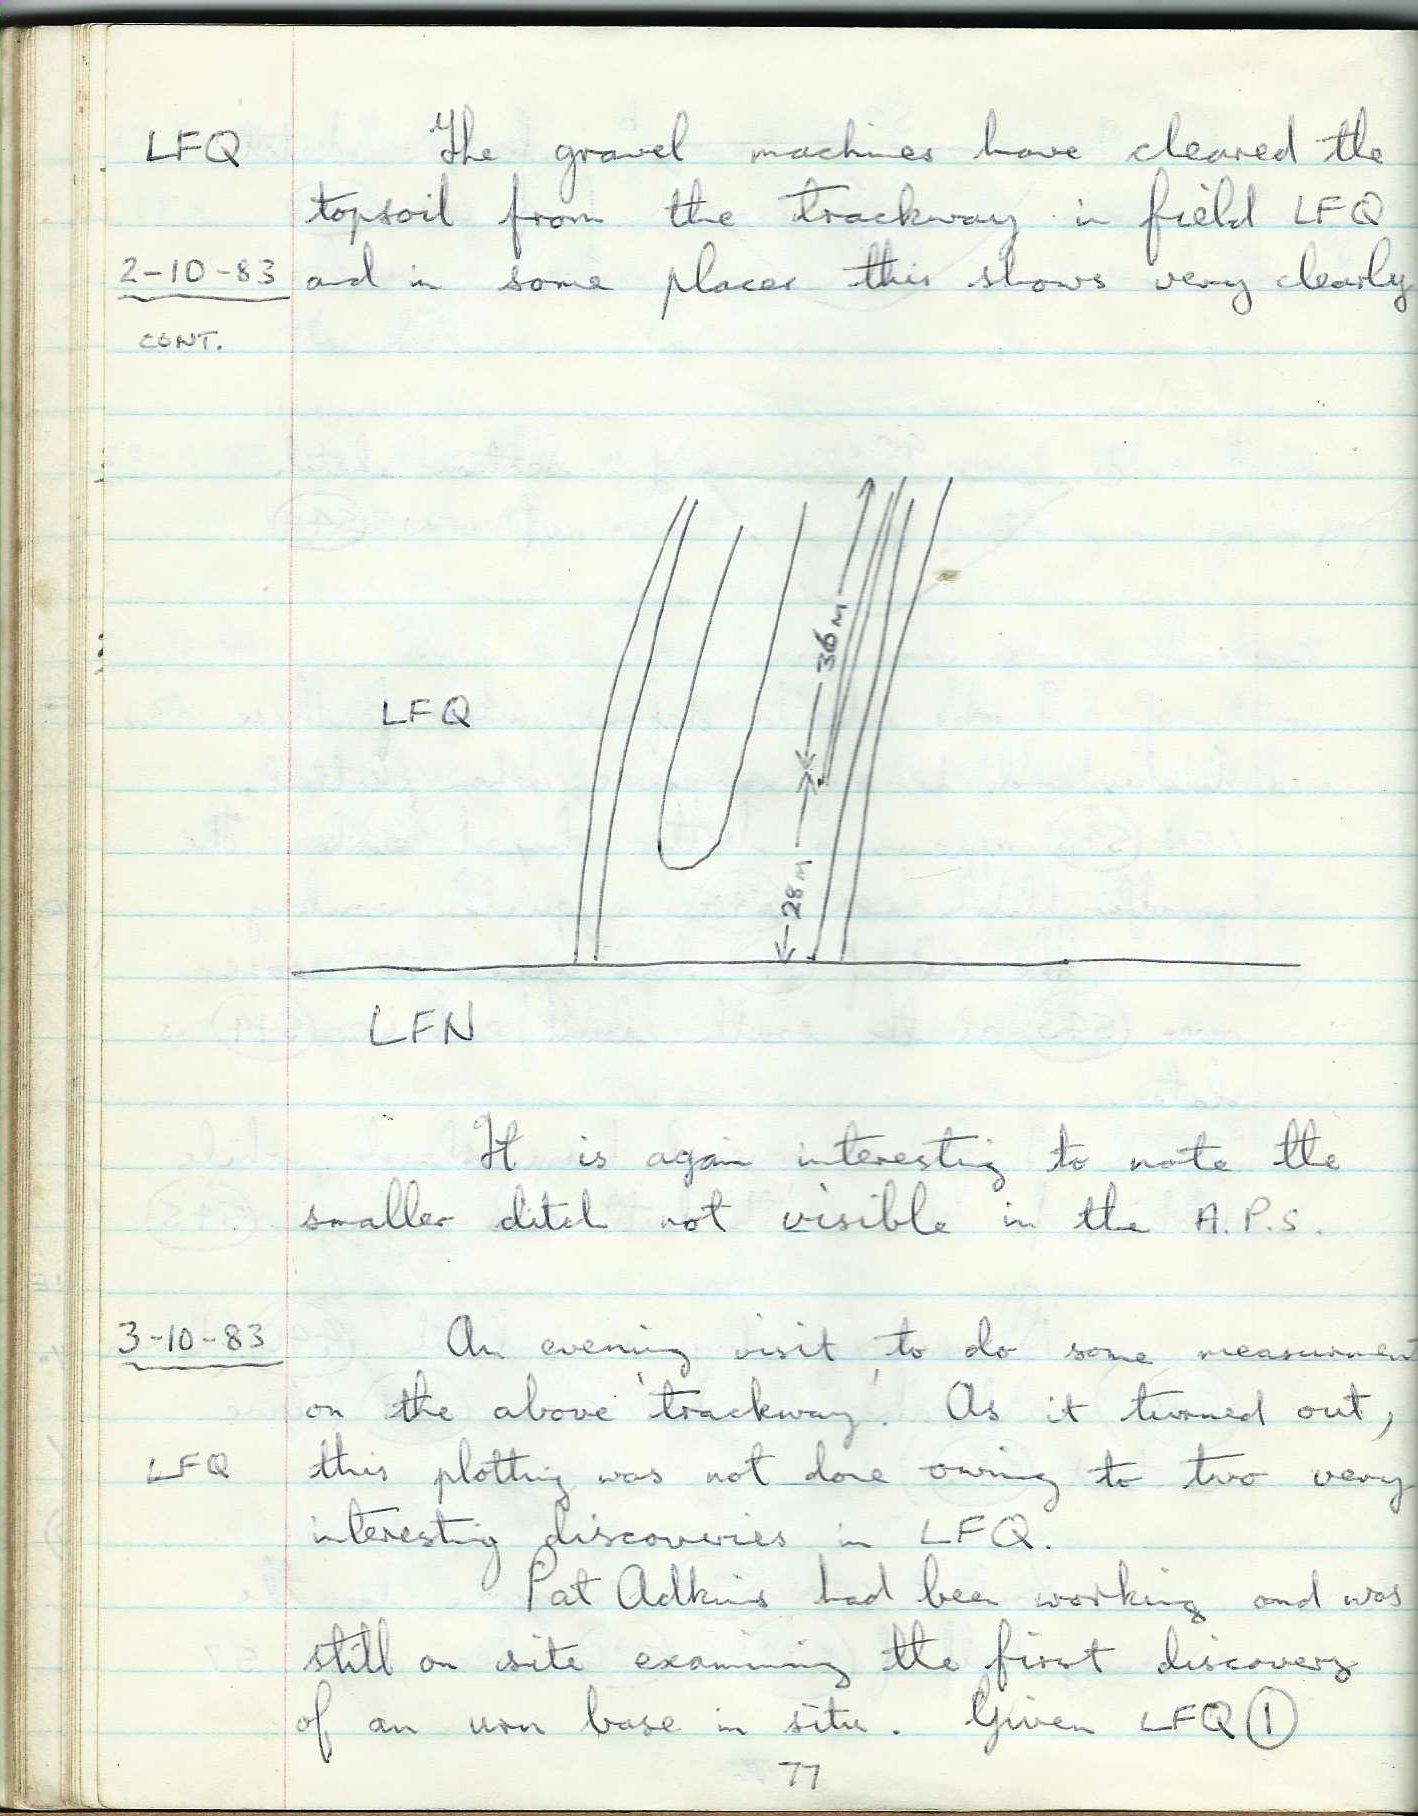 LFQ The gravel machines have cleared the
topsoil from the trackway in field LFQ
2-10-83 and in some places this shows very clearly
CONT.
36 M
LFQ
28 M
LFN
It is again interesting to note the
smaller ditch not visible in the A.P.S.
3-10-83 An evening visit to do some measurment
on the above 'trackway'. As it turned out,
LFQ this plotting was not done owing to two very
interesting discoveries in LFQ.
Pat Adkins had been working and was
still on site examining the first discovery
of an urn base in situ. Given LFQ ①
77